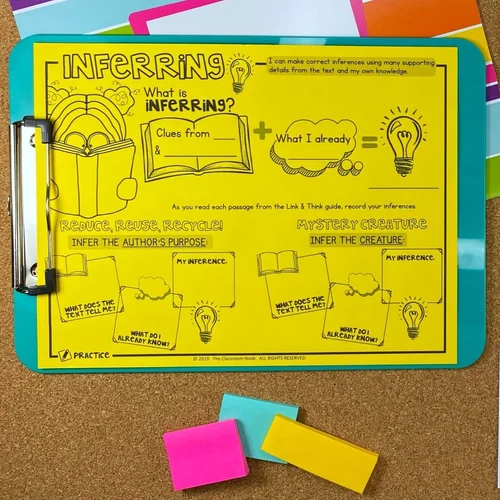 INFERRING
I can make correct inferences using many supporting
details from the text and my own knowledge.
What is
INFERRING?
Clues from ____
& ____
+
What I already
=
As you read each passage from the Link & Think guide, record your inferences.
REDUCE, REUSE, RECYCLE!
INFER THE AUTHOR'S PURPOSE:
MY INFERENCE:
WHAT DOES THE
TEXT TELL ME?
WHAT DO I
ALREADY KNOW?
MYSTERY CREATURE
INFER THE CREATURE:
MY INFERENCE:
WHAT DOES THE
TEXT TELL ME?
WHAT DO I
ALREADY KNOW?
PRACTICE
© 2019 The Classroom Nook. ALL RIGHTS RESERVED.